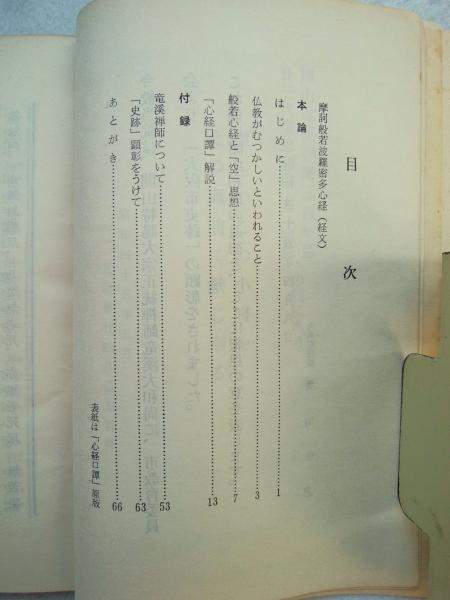 目次
摩訶般若波羅密多心経（経文）
本論
はじめに……1
仏教がむつかしいといわれること……3
般若心経と「空」思想……7
「心経口譚」解説……13
付録
竜溪禅師について……53
「史跡」顕彰をうけて……63
あとがき……66
表紙は「心経口譚」原版